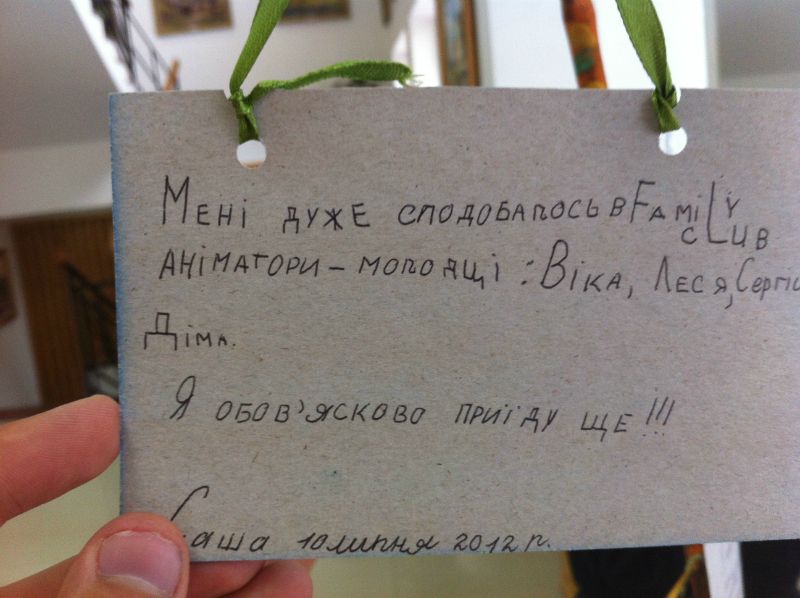 Мені дуже сподобалось в FamiLy
cLub
аніматори – молодці : Віка, Леся, Сергій
Діма.
Я обов'язково приїду ще!!!
Саша 10 липня 2012 р.